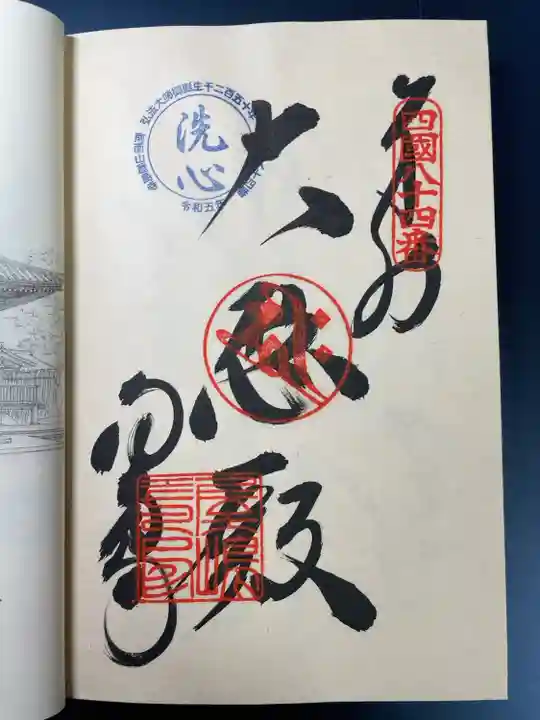 四國八十四番
奉納
大悲殿
屋島寺
弘法大師御誕生千二百五十年
洗心
令和五年